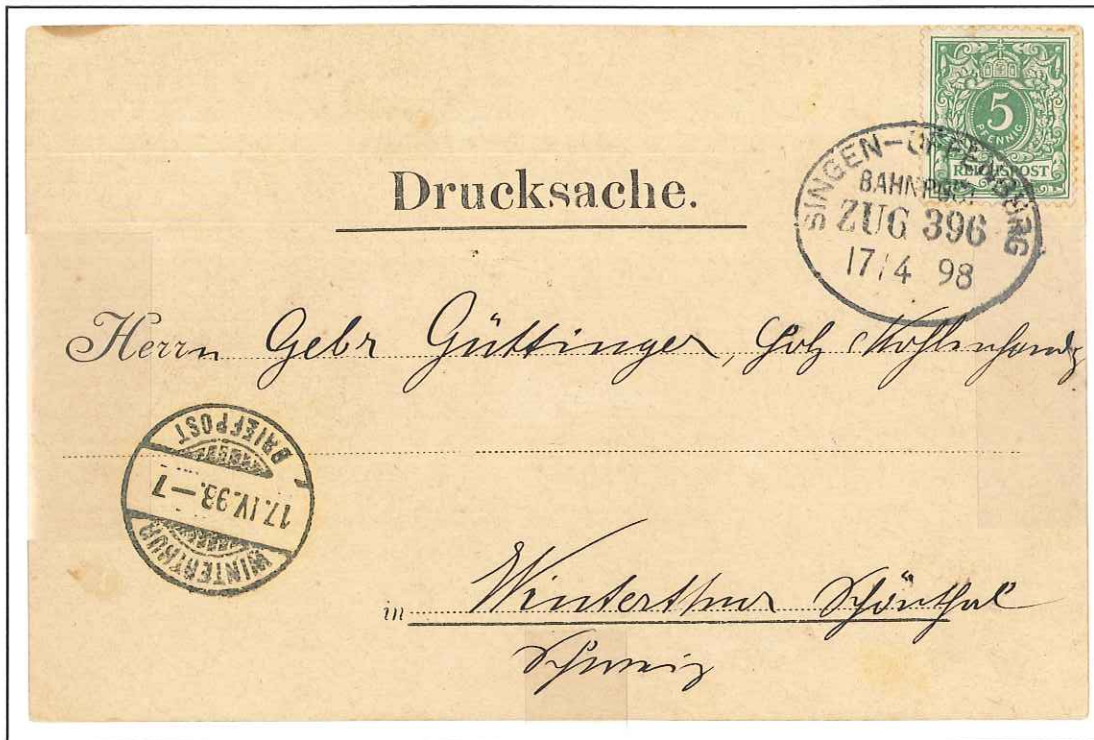 5
PFENNIG
REICHSPOST
SINGEN-OFFENBURG
BAHNPOST
ZUG 396
17/4 98
Drucksache.
Herrn Gebr Güttinger, Holz Kohlenhandlg
BRIEFPOST
17.IV.98.-7
WINTERTHUR
in Winterthur Schönthal
Schweiz